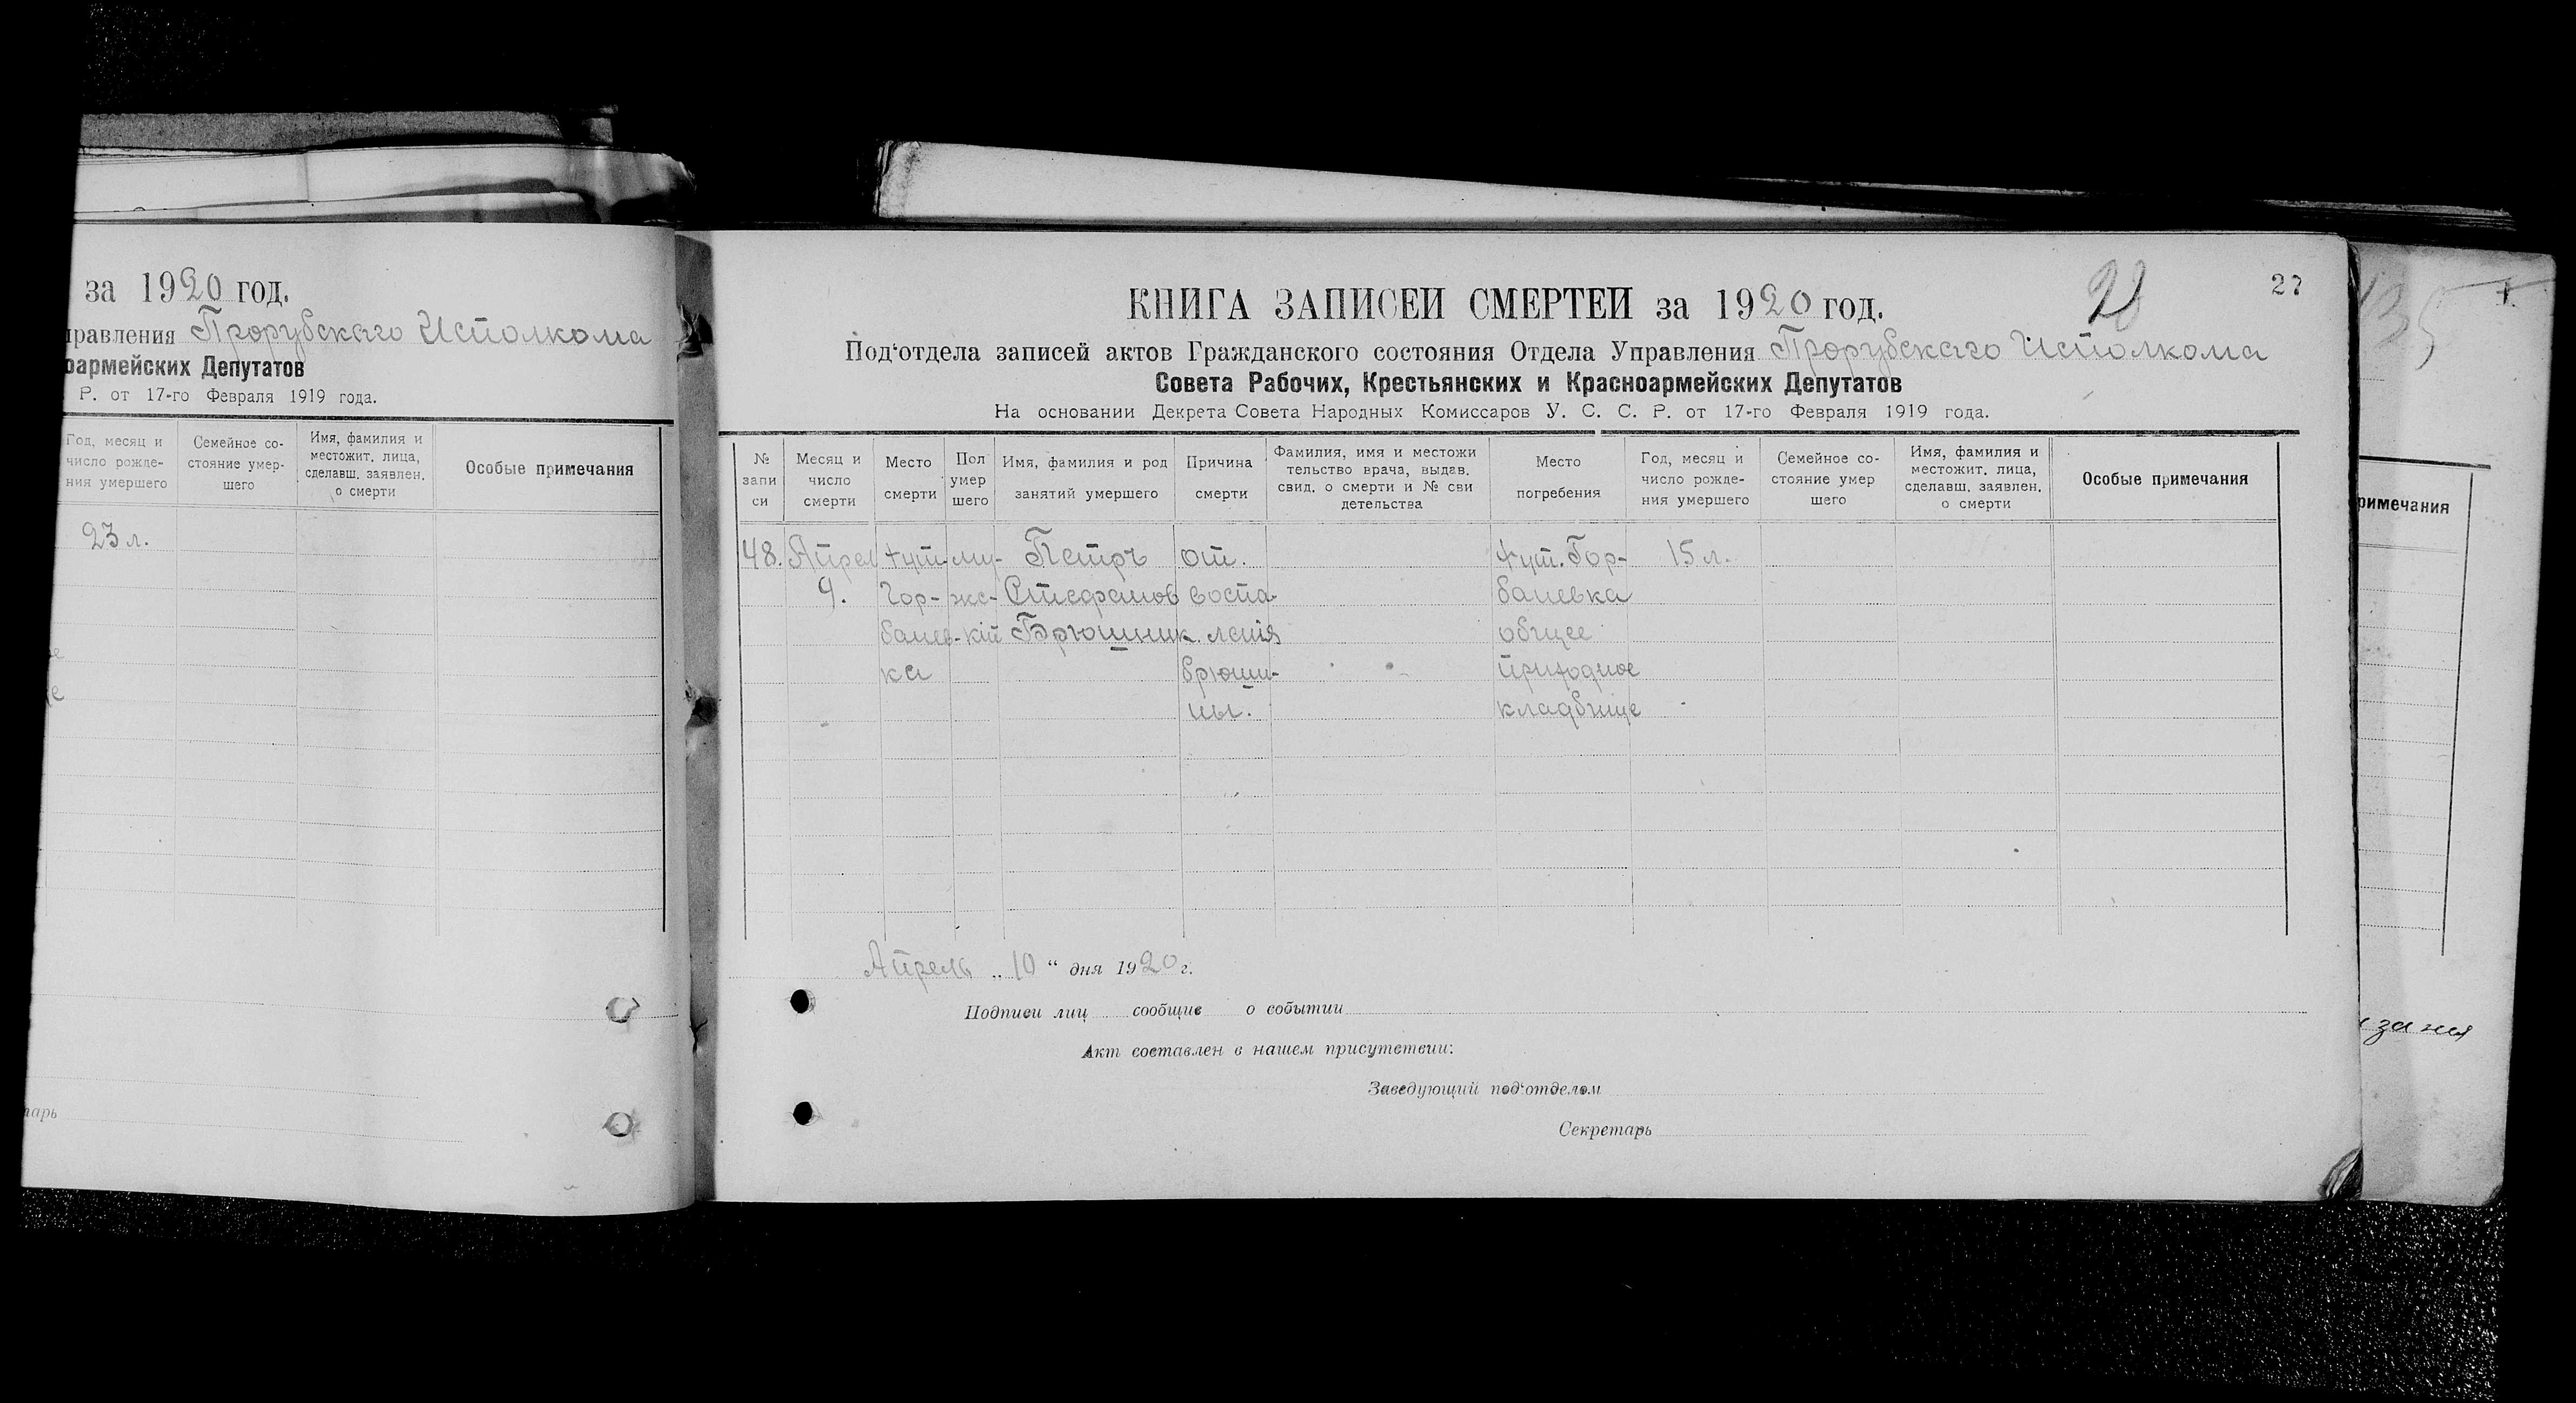 за 1920 год.
правления Прорубскаго Исполкома
оармейских Депутатов
Р. от 17-го Февраля 1919 года.
Год, месяц и число рожде- ния умершего
Семейное со- стояние умер- шего
Имя, фамилия и местожит. лица, сделавш. заявлен. о смерти
Особые примечания
23 л.
тарь
КНИГА ЗАПИСЕЙ СМЕРТЕЙ за 1920 год.
27
Под‘отдела записей актов Гражданского состояния Отдела Управления Прорубскаго Исполкома
Совета Рабочих, Крестьянских и Красноармейских Депутатов
На основании Декрета Совета Народных Комиссаров У. С. С. Р. от 17-го Февраля 1919 года.
№ запи си
Месяц и число смерти
Место смерти
Пол умер шего
Имя, фамилия и род занятий умершего
Причина смерти
Фамилия, имя и местожи тельство врача, выдав. свид. о смерти и № сви детельства
Место погребения
Год, месяц и число рожде- ния умершего
Семейное со- стояние умер шего
Имя, фамилия и местожит. лица, сделавш. заявлен. о смерти
Особые примечания
48. Апрел хут. му- Петръ от. хут. Гор- 15 л.
9. Гор- жс- Стефанов воспа- баневка
банев- кій Брюшник. ленія общее
ка брюши- приходное
ны. кладбище
Апрель „10“ дня 1920 г.
Подписи лиц сообщив о событии
Акт составлен в нашем присутствии:
Заведующий под‘отделом
Секретарь
135
1.
римечания